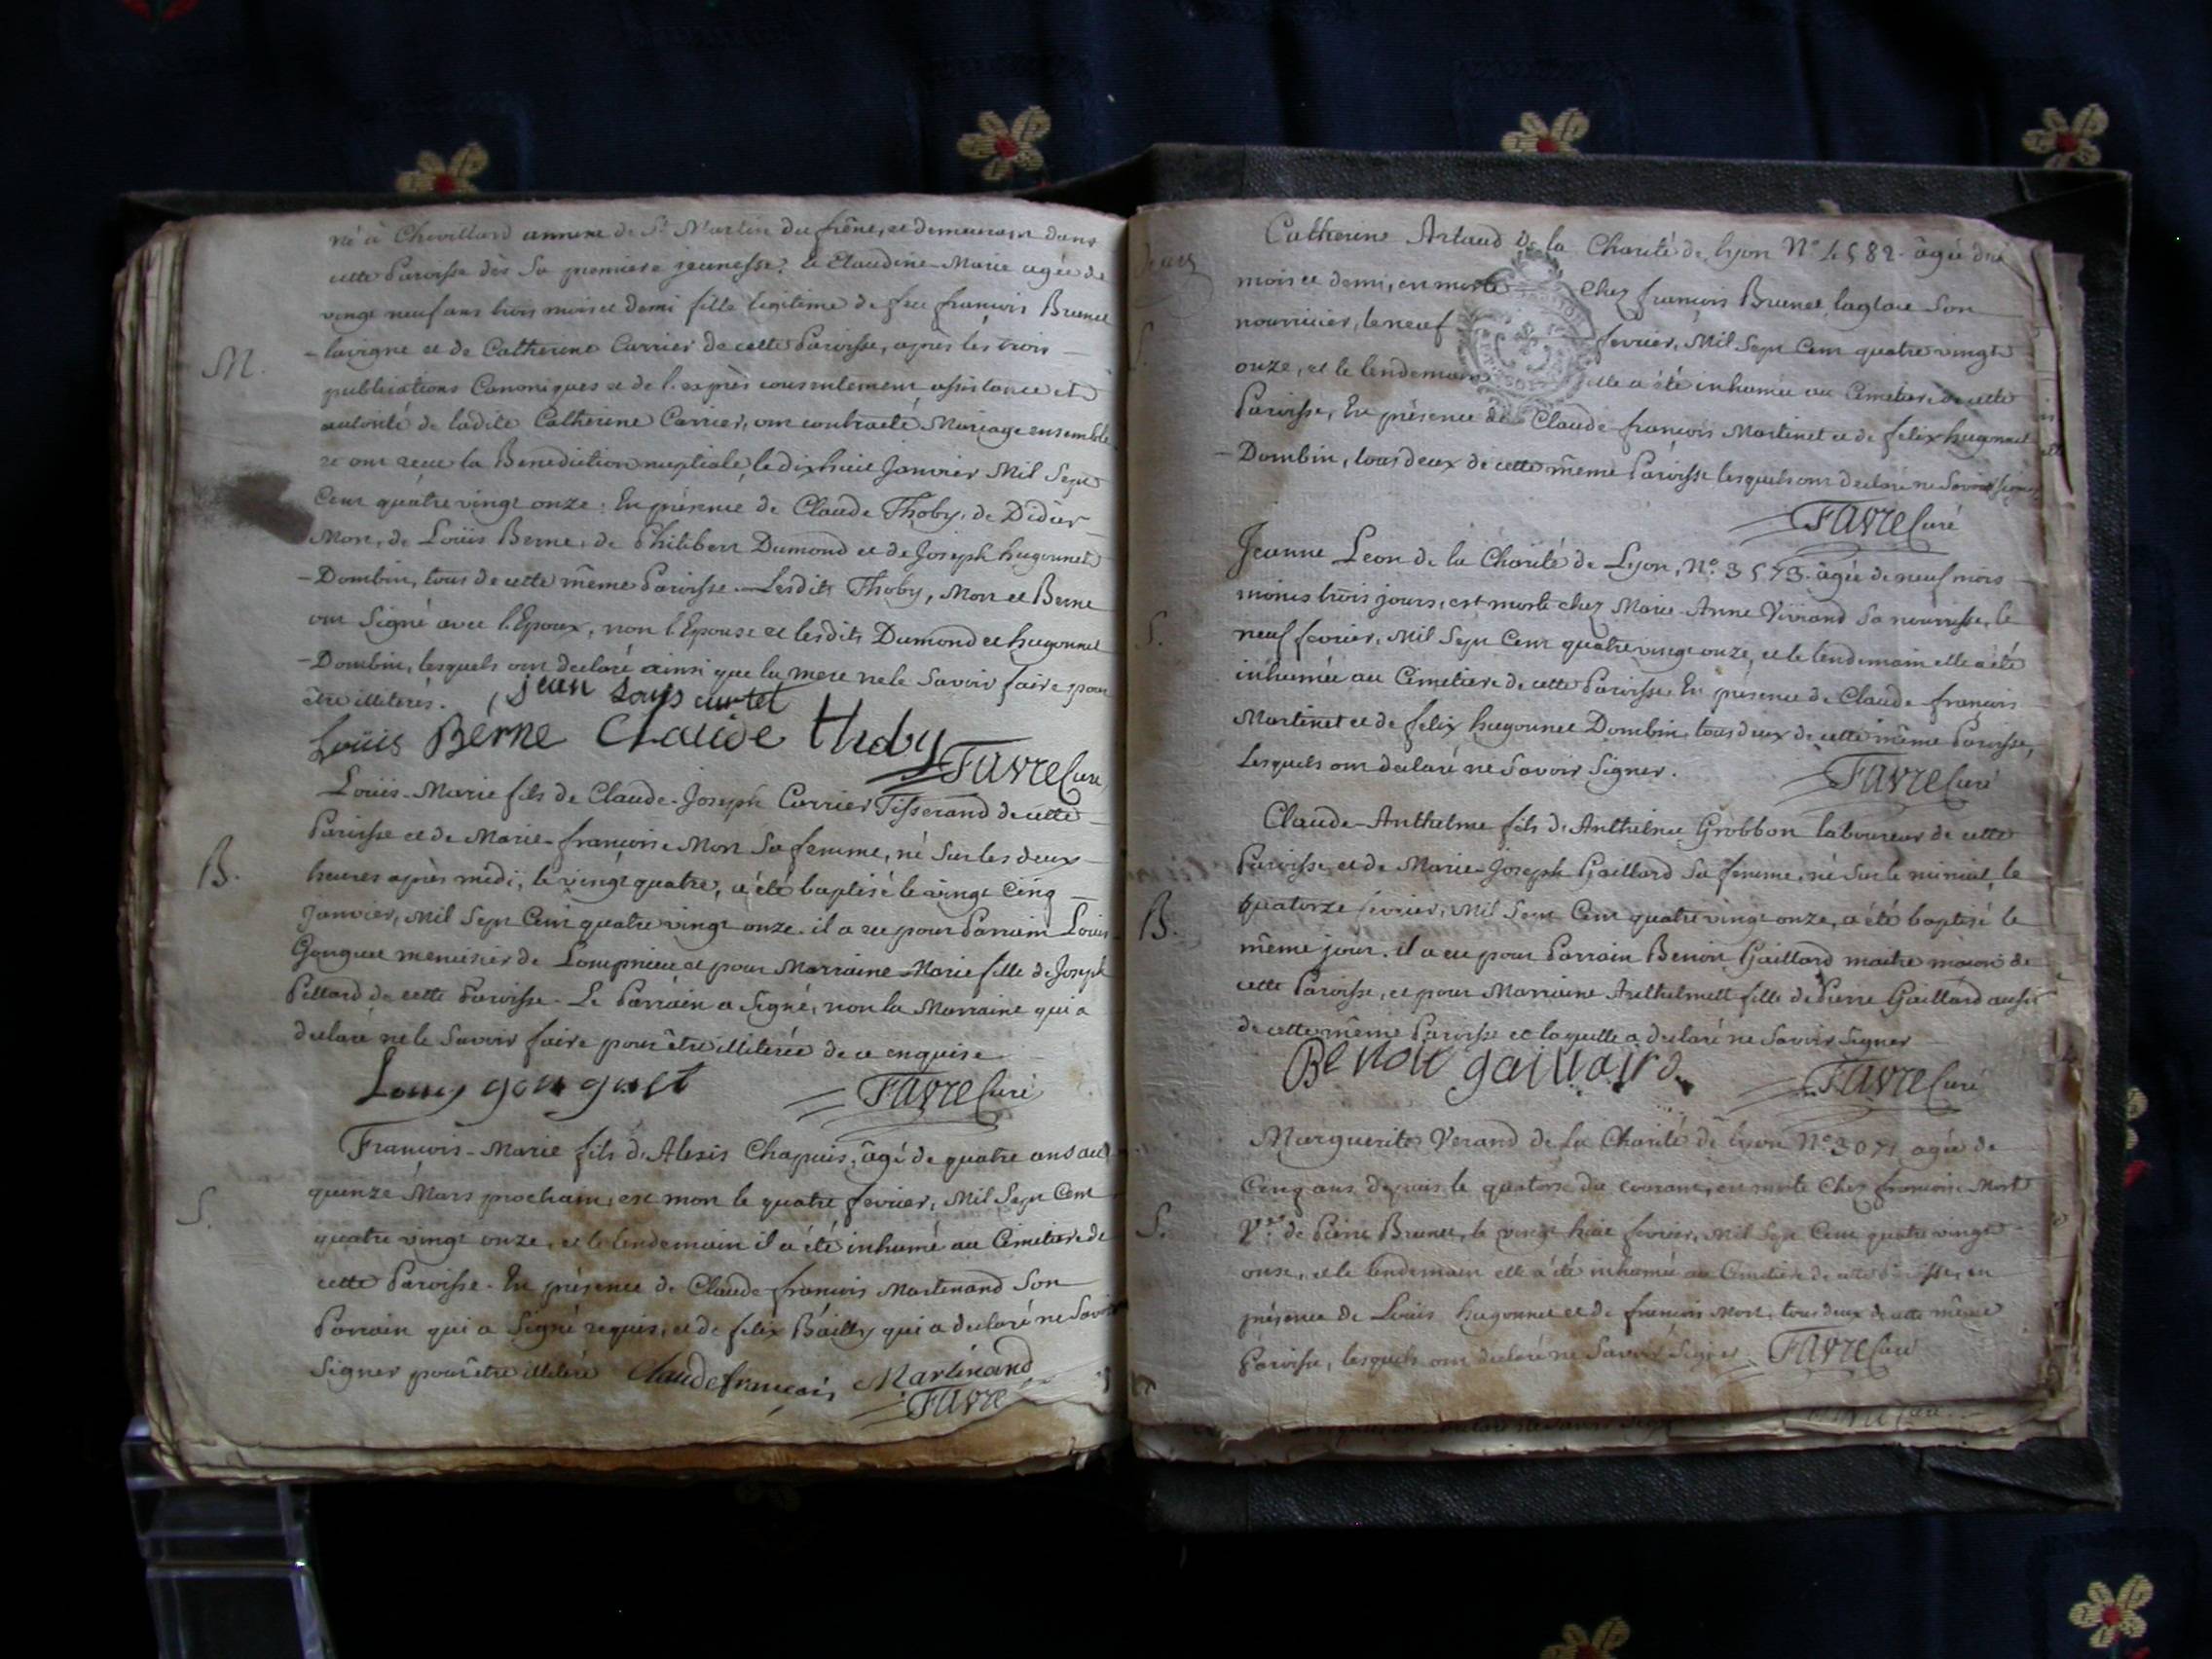 né à Chevillard annexe de St Martin du frêne, et demeurant dans
cette Paroisse dès sa premiere jeunesse: et Claudine-Marie agée de
vingt neuf ans trois mois et demi fille legitime de feu françois Brunet
-lavigne et de Catherine Carrier de cette Paroisse, après les trois
M.
publications Canoniques et de l'exprès consentement, assistance et
autorité de ladite Catherine Carrier, ont contracté Mariage ensemble
et ont reçu la Benediction nuptiale, le dix huit Janvier Mil Sept
Cent quatre vingt onze: En présence de Claude Thoby, de Didier
Mon, de Loüis Berne, de Philibert Dumond et de Joseph hugonnet
-Dombin, tous de cette même Paroisse. Lesdits Thoby, Mon et Berne
ont Signé avec l'Epoux, non l'Epouse et lesdits Dumond et hugonnet
-Dombin, lesquels ont declaré ainsi que la mere ne le Savoir faire pour
être illiterés. jean Louis curtet
Loüis Berne Claude thoby
FAVRE Curé
Loüis-Marie fils de Claude-Joseph Carrier Tisserand de cette
Paroisse et de Marie-françoise Mon Sa femme, né Sur les deux
B.
heures après midi, le vingt quatre, a été baptisé le vingt Cinq
Janvier, Mil Sept Cent quatre vingt onze. il a eu pour Parrain Louis
Gouguet menuisier de Lompnieu et pour Marraine Marie fille de Joseph
Pillard de cette Paroisse. Le Parrain a Signé, non la Marraine qui a
declaré ne le Savoir faire pour être illiterée de ce enquise
Louis gouguet FAVRE Curé
François-Marie fils d'Alexis Chapuis, âgé de quatre ans au
quinze Mars prochain, est mort le quatre fevrier, Mil Sept Cent
S.
quatre vingt onze, et le lendemain il a été inhumé au Cimetiere de
cette Paroisse. En présence de Claude-françois Martinand Son
Parrain qui a Signé requis, et de felix Bailly qui a declaré ne Savoir
Signer pour être illiteré Claude françois Martinand
FAVRE
Catherine Artaud de la Charité de Lyon N° 4582 âgée d'un
mois et demi, est morte chez françois Brunet laglaie Son
nourricier, le neuf fevrier, Mil Sept Cent quatre vingt
S.
onze, et le lendemain elle a été inhumée au Cimetiere de cette
Paroisse, En présence de Claude-françois Martinet et de felix hugonnet
-Dombin, tous deux de cette même Paroisse lesquels ont declaré ne Savoir signer
FAVRE Curé
Jeanne Leon de la Charité de Lyon, N° 3573. âgée de neuf mois
moins trois jours, est morte chez Marie-Anne Viviand Sa nourrisse, le
S.
neuf fevrier, Mil Sept Cent quatre vingt onze, et le lendemain elle a été
inhumée au Cimetiere de cette Paroisse, En présence de Claude-françois
Martinet et de felix hugonnet Dombin, tous deux de cette même Paroisse,
Lesquels ont declaré ne Savoir Signer. FAVRE Curé
Claude-Anthelme fils d'Anthelme Grobbon laboureur de cette
Paroisse, et de Marie-Joseph Gaillard Sa femme, né Sur le minuit, le
B.
quatorze fevrier, Mil Sept Cent quatre vingt onze, a été baptisé le
même jour. il a eu pour Parrain Benoit Gaillard maitre maçon de
cette Paroisse, et pour Marraine Anthelmette fille de Pierre Gaillard aussi
de cette même Paroisse et laquelle a declaré ne Savoir Signer
Benoit gaillard FAVRE Curé
Marguerite Verand de la Charité de Lyon N° 3071 agée de
Cinq ans depuis le quatorze du courant, est morte Chez françoise Mort
S.
Ve de Pierre Brunet, le vingt huit fevrier, Mil Sept Cent quatre vingt
onze, et le lendemain elle a été inhumée au Cimetiere de cette Paroisse, en
présence de Louis hugonnet et de françois Mort, tous deux de cette même
Paroisse, lesquels ont declaré ne Savoir Signer. FAVRE Curé